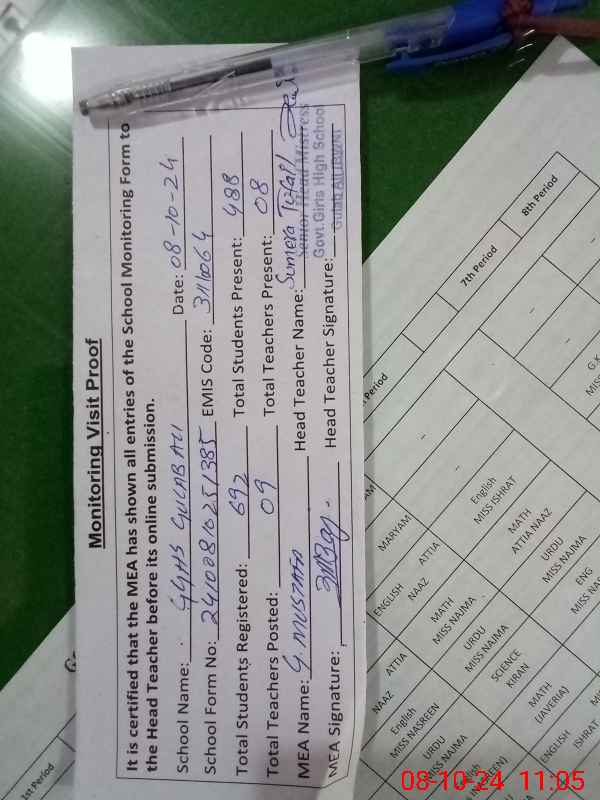 Monitoring Visit Proof
It is certified that the MEA has shown all entries of the School Monitoring Form to
the Head Teacher before its online submission.
School Name: GGHS GULAB ALI Date: 08-10-24
School Form No: EMIS Code:
Total Students Registered: 692 Total Students Present: 488
Total Teachers Posted: 09 Total Teachers Present: 08
MEA Name: G. MUSTAFA Head Teacher Name: Sumera Tufail
MEA Signature: Head Teacher Signature:
Senior Head Mistress
Govt. Girls High School
Gulab Ali
1st Period
7th Period
8th Period
Period
MARYAM
ENGLISH ATTIA
NAAZ
English
MISS ISHRAT
MATH
MISS NAJMA
MATH
ATTIA NAAZ
ATTIA
NAAZ
URDU
MISS NAJMA
URDU
MISS NAJMA
English
MISS NASREEN
SCIENCE
KIRAN
ENG
URDU
MISS NAJMA
MATH
(JAVERIA)
ENGLISH
ISHRAT
G.K
08-10-24 11:05